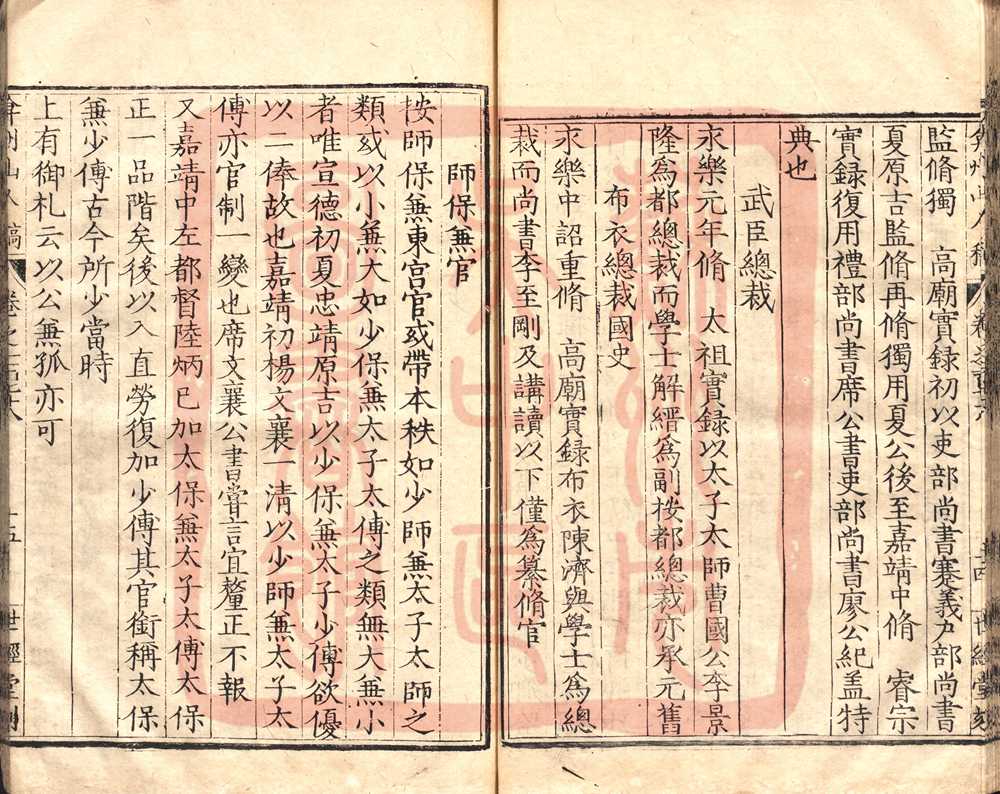 監脩獨　高廟實録初以吏部尚書蹇義户部尚書
夏原吉監脩再脩獨用夏公後至嘉靖中脩　睿宗
實録復用禮部尚書席公書吏部尚書廖公紀盖特
典也
武臣總裁
永樂元年脩　太祖實録以太子太師曹國公李景
隆爲都總裁而學士解縉爲副按都總裁亦承元舊
布衣總裁國史
永樂中詔重脩　高廟實録布衣陳濟與學士爲總
裁而尚書李至剛及講讀以下僅爲纂脩官
師保兼官
按師保兼東宫官或帶本秩如少師兼太子太師之
類或以小兼大如少保兼太子太傅之類無大兼小
者唯宣德初夏忠靖原吉以少保兼太子少傅欲優
以二俸故也嘉靖初楊文襄一清以少師兼太子太
傅亦官制一變也席文襄公書嘗言宜釐正不報
又嘉靖中左都督陸炳已加太保兼太子太傅太保
正一品階矣後以入直勞復加少傅其官銜稱太保
兼少傅古今所少當時
上有御札云以公兼孤亦可
弇州山人稿
十五
世經堂刻